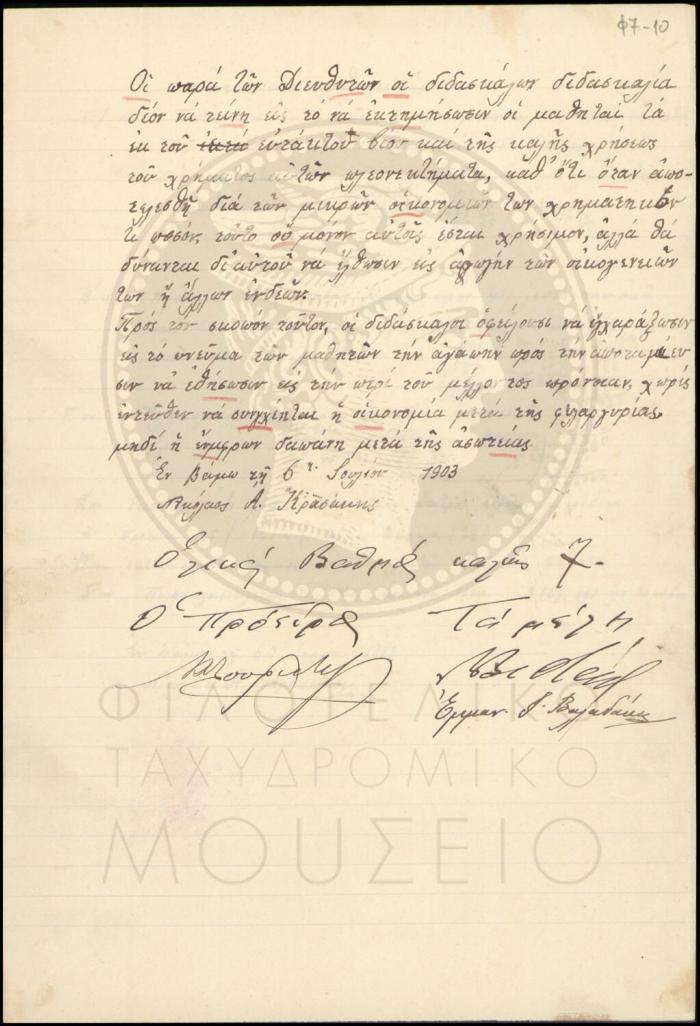 Φ7-10
Οἱ παρά τῶν Διευθυτῶν οἱ διδασκάλων διδασκαλία
δέον νά τείνῃ εἰς τό νά ἐκτημήσωσιν οἱ μαθηταί τά
ἐκ τοῦ εὐτάκτου βίου καί τῆς καλῆς χρήσεως
τοῦ χρήματος αὐτῶν πλεονεκτήματα, καθ' ὅτι ὅταν ἀπο-
τελεσθῇ διά τῶν μικρῶν οἰκονομιῶν των χρηματικόν
τι ποσόν, τοῦτο οὐ μόνον αὐτοῖς ἔσται χρήσιμον, ἀλλά θά
δύνανται δι' αὐτοῦ νά ἔλθωσιν εἰς ἀρωγήν τῶν οἰκογενειῶν
των ἤ ἄλλων ἐνδεῶν.
Πρός τον σκοπόν τοῦτον, οἱ διδάσκαλοι ὀφείλουσι νά ἐγχαράξωσιν
εἰς τό πνεῦμα τῶν μαθητῶν τήν ἀγάπην πρός τήν ἀποταμίευ
σιν νά ἐθήσωσιν εἰς τήν περί τοῦ μέλλοντος πρόνοιαν, χωρίς
ἐντεῦθεν νά συγχέηται ἡ οἰκονομία μετά τῆς φιλαργυρίας
μηδέ ἡ ἔμφρων δαπάνη μετά τῆς ἀσωτείας.
Ἐν Βάμῳ τῇ 6ῃ Ἰουλίου 1903
Νικόλαος Α. Κρασάκης
Ὁλική Βαθμός καλῶς 7.
Ὁ Πρόεδρος Τά μέλη
Ἐμμαν. Βαλαδάκης
ΦΙΛΟΤΕΛΙΚΟ
ΤΑΧΥΔΡΟΜΙΚΟ
ΜΟΥΣΕΙΟ